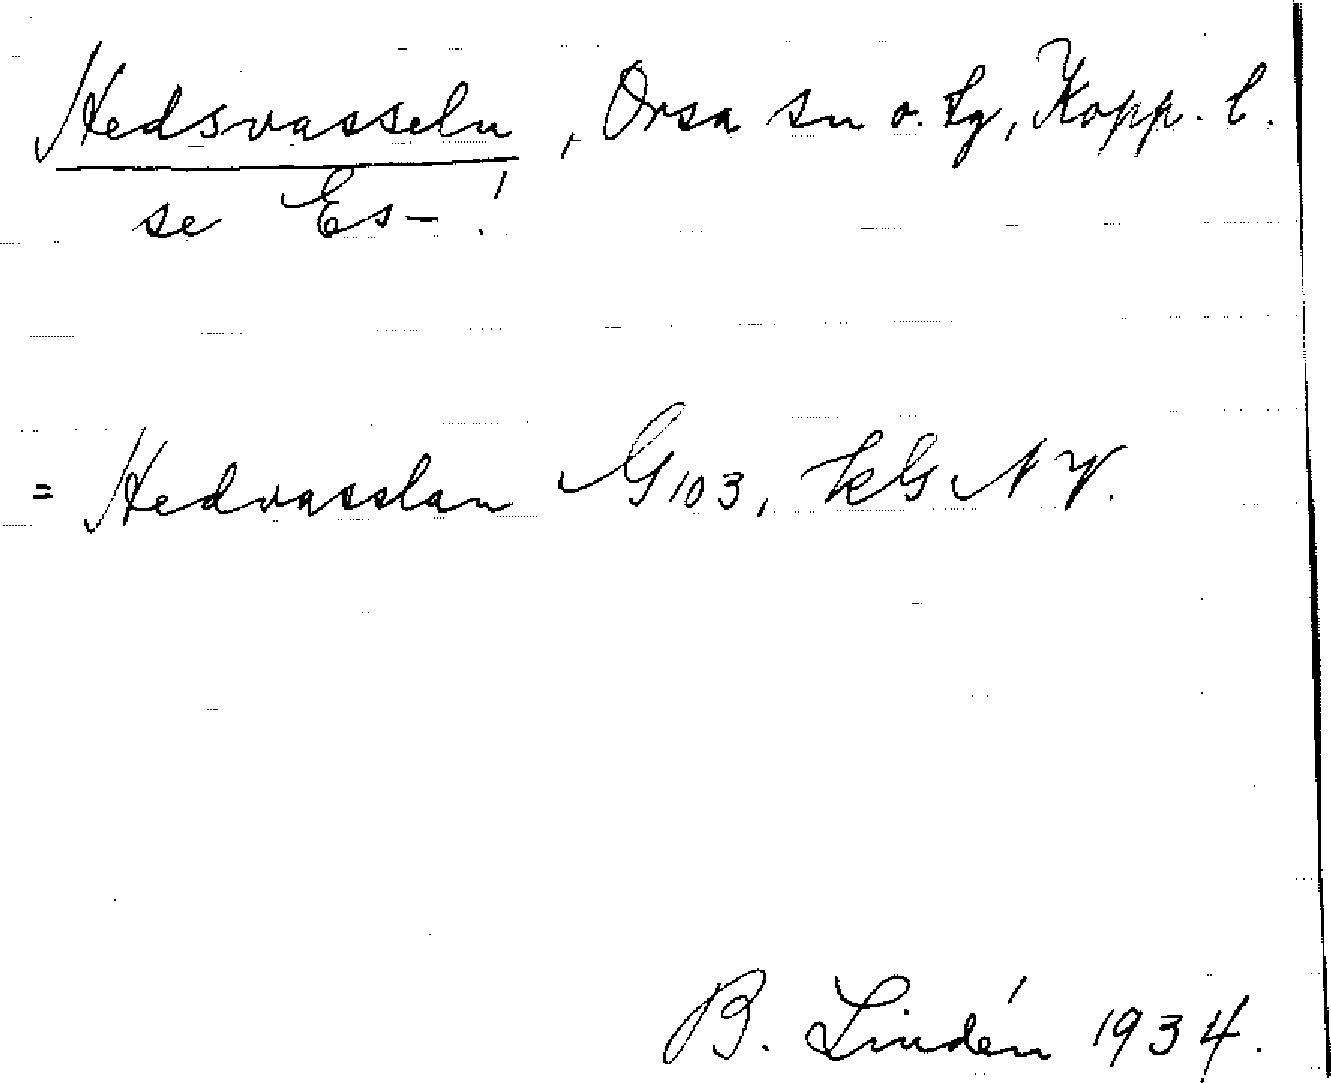 Hedsvasseln, Orsa sn o. tg, Kopp. l.
se Es-!
= Hedvasslan G 103, kG NV.
B. Lindén 1934.